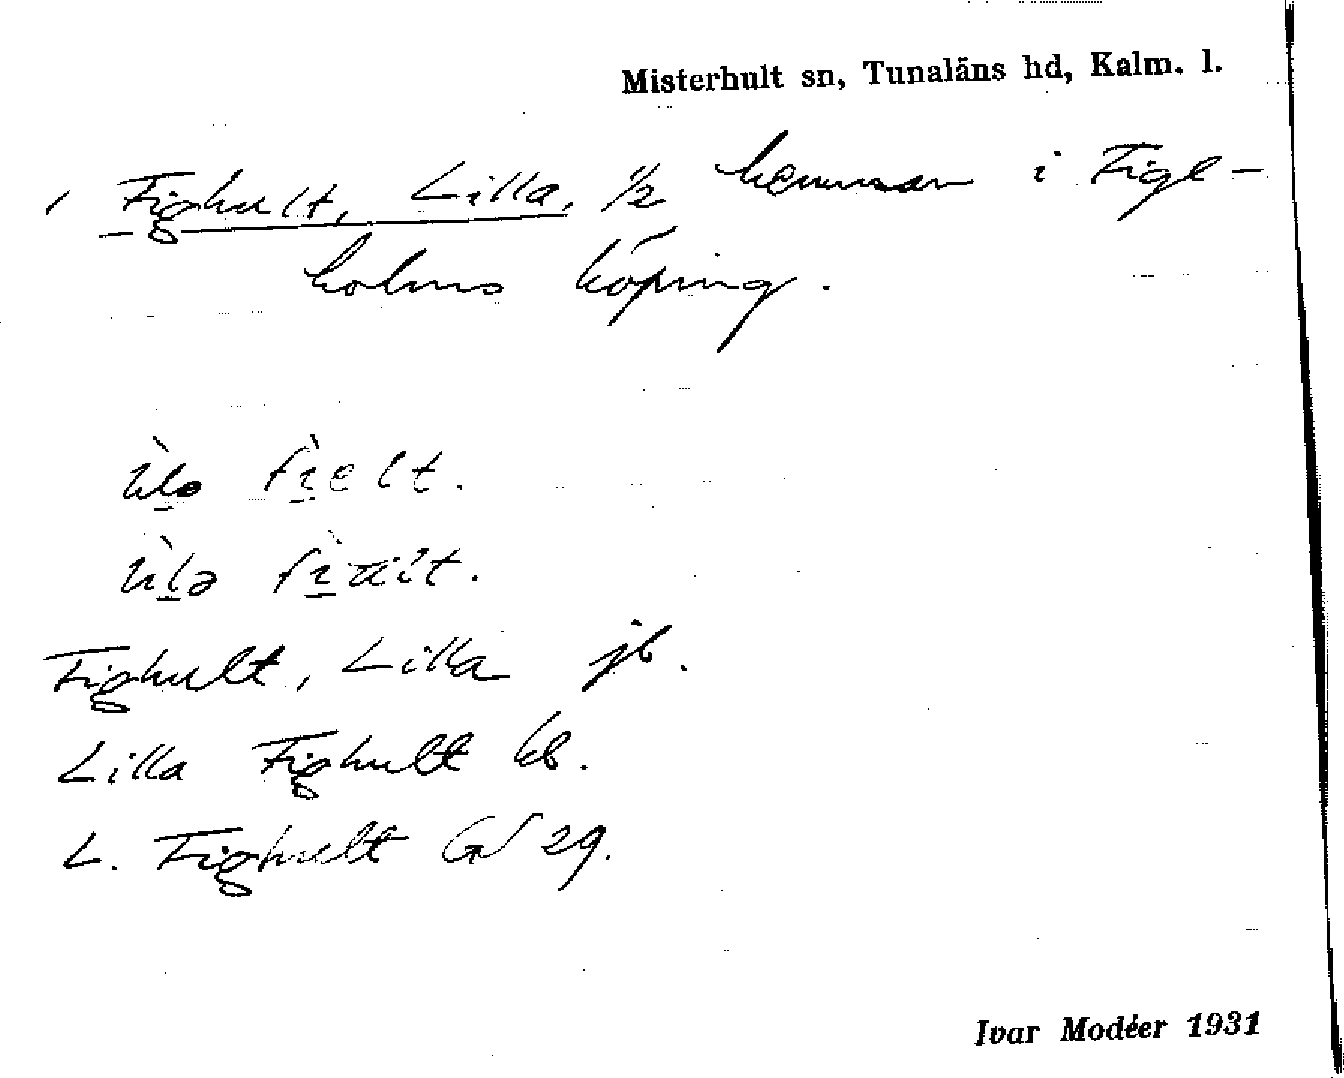 Misterhult sn, Tunaläns hd, Kalm. l.
Fighult, Lilla, 1/2 hemman i Fige-
holms köping.
Fighult, Lilla jb.
Lilla Fighult kb.
L. Fighult GV 29.
Ivar Modéer 1931